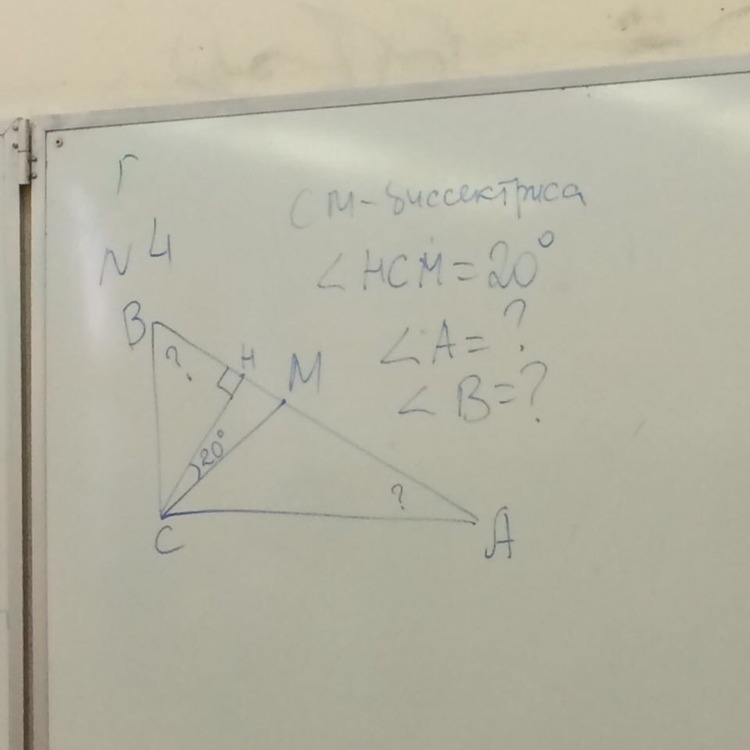 Г
N 4
CM - биссектриса
∠HCM = 20°
∠A = ?
∠B = ?
B
?
H
M
20°
?
C
A